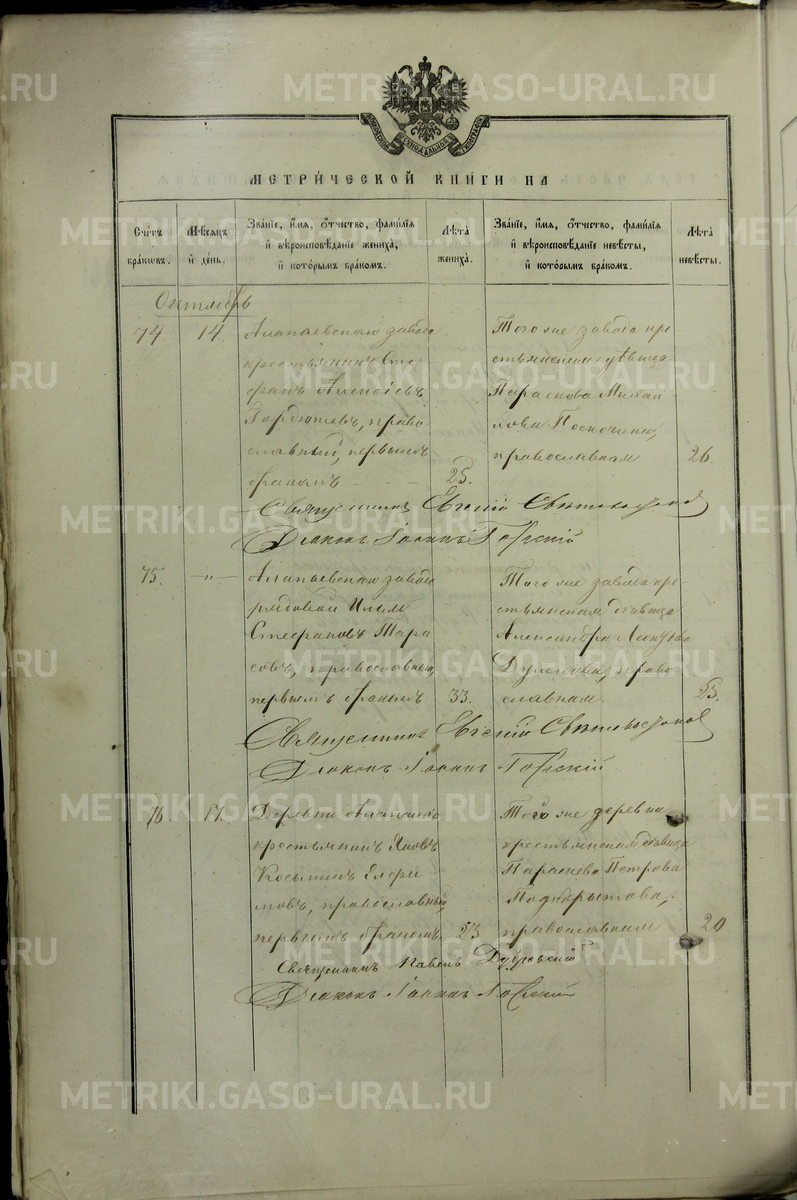 METRIKI.GASO-URAL.RU
МОСКОВСКОЙ СѴНОДАЛЬНОЙ ТИПОГРАФІИ
МЕТРИ́ЧЕСКОЙ КНИ́ГИ НА
Сче́тъ бра́кωвъ.
Мѣ́сѧцъ и҆ де́нь.
Зва́нїе, и҆́мѧ, ѻ҆́тчество, фами́лїѧ и҆ вѣроисповѣ́данїе жениха̀, и҆ кото́рымъ бра́комъ.
Лѣ́та жениха̀.
Зва́нїе, и҆́мѧ, ѻ҆́тчество, фами́лїѧ и҆ вѣроисповѣ́данїе невѣ́сты, и҆ кото́рымъ бра́комъ.
Лѣ́та невѣ́сты.
Октябрь
74. 14.
Алапаевскаго завода
крестьянинъ Сте
фанъ Алексѣевъ
Гордюшевъ, право
славный, первымъ
бракомъ 25.
Того же завода кре
стьянская дѣвица
Параскева Михаи
лова
православная 26.
Священникъ Евгеній
Діаконъ Іоаннъ
75. —"—
Алапаевскаго завода
рядовой Илья
Стефановъ Тара
совъ, православный,
первымъ бракомъ 33.
Того же завода кре
стьянская дѣвица
Александра Леонтьева
право
славная. 25.
Священникъ Евгеній
Діаконъ Іоаннъ
76. 17.
Деревни
крестьянинъ Яковъ
Косьминъ Елфи
мовъ, православный,
первымъ бракомъ. 23
Того же деревни
крестьянская дѣвица
Параскева Петрова
православная 20
Священникъ Павелъ Дубровскій
Діаконъ Іоаннъ